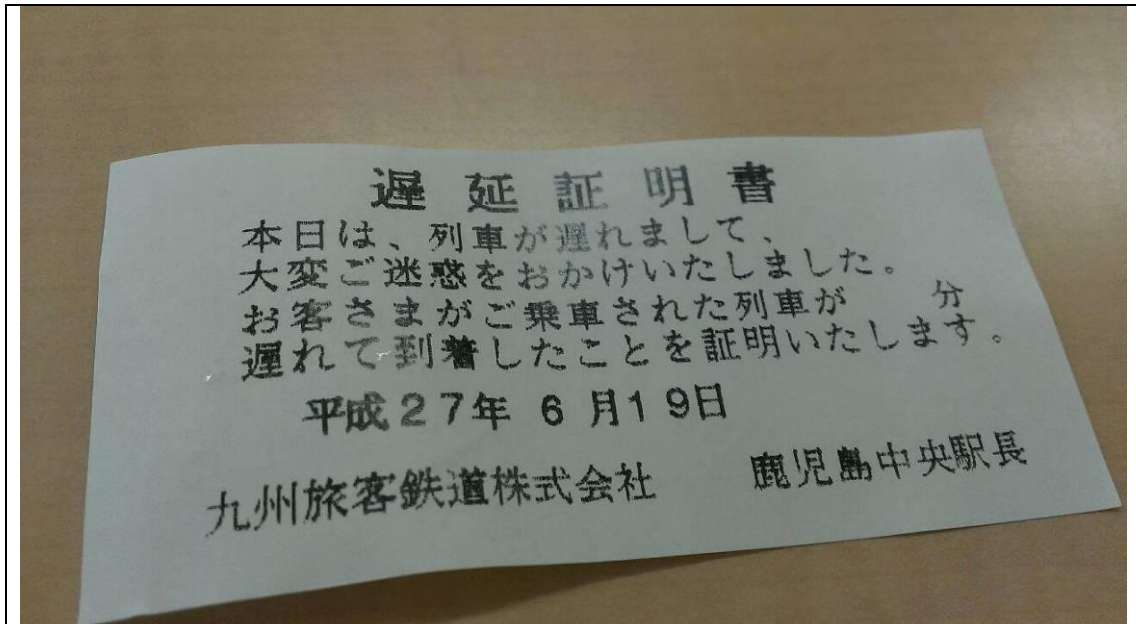 遅延証明書
本日は、列車が遅れまして、
大変ご迷惑をおかけいたしました。
お客さまがご乗車された列車が　　分
遅れて到着したことを証明いたします。
平成27年 6 月19日
九州旅客鉄道株式会社　　鹿児島中央駅長